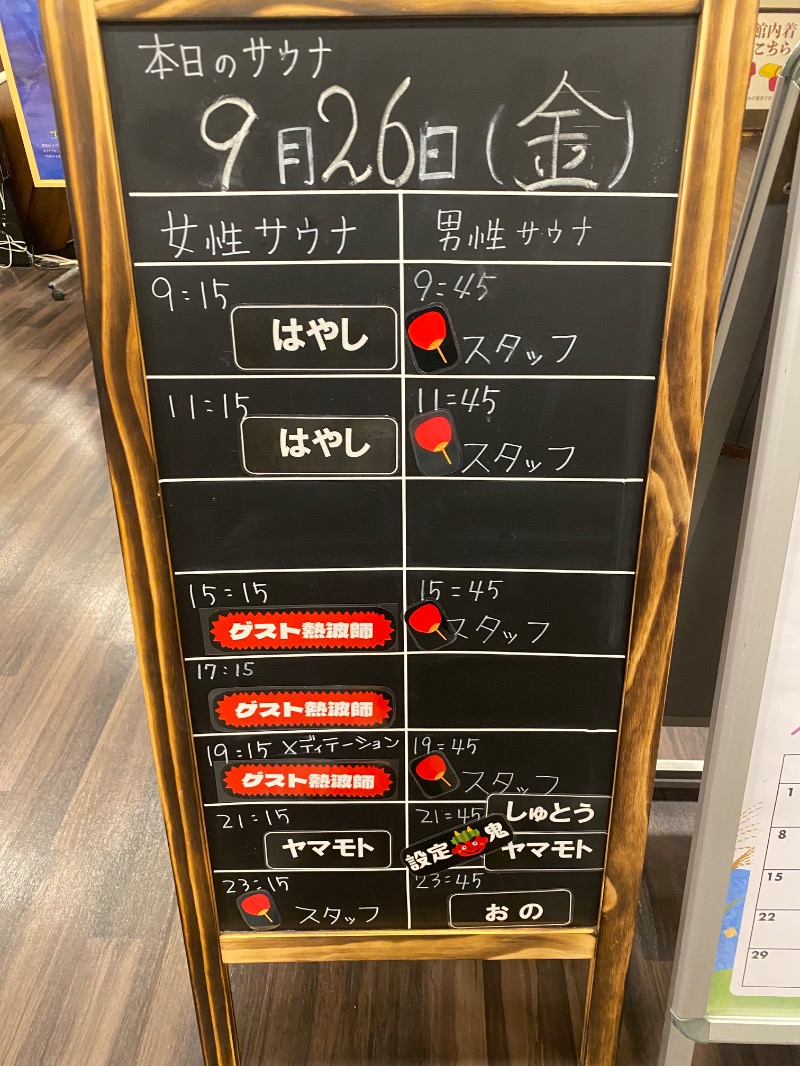 本日のサウナ
9月26日(金)
女性サウナ 男性サウナ
9:15 9:45
はやし スタッフ
11:15 11:45
はやし スタッフ
15:15 15:45
ゲスト熱波師 スタッフ
17:15
ゲスト熱波師
19:15 メディテーション 19:45
ゲスト熱波師 スタッフ
21:15 21:45 しゅとう
ヤマモト 設定 鬼 ヤマモト
23:15 23:45
スタッフ おの
館内着
こちら
1
8
15
22
29